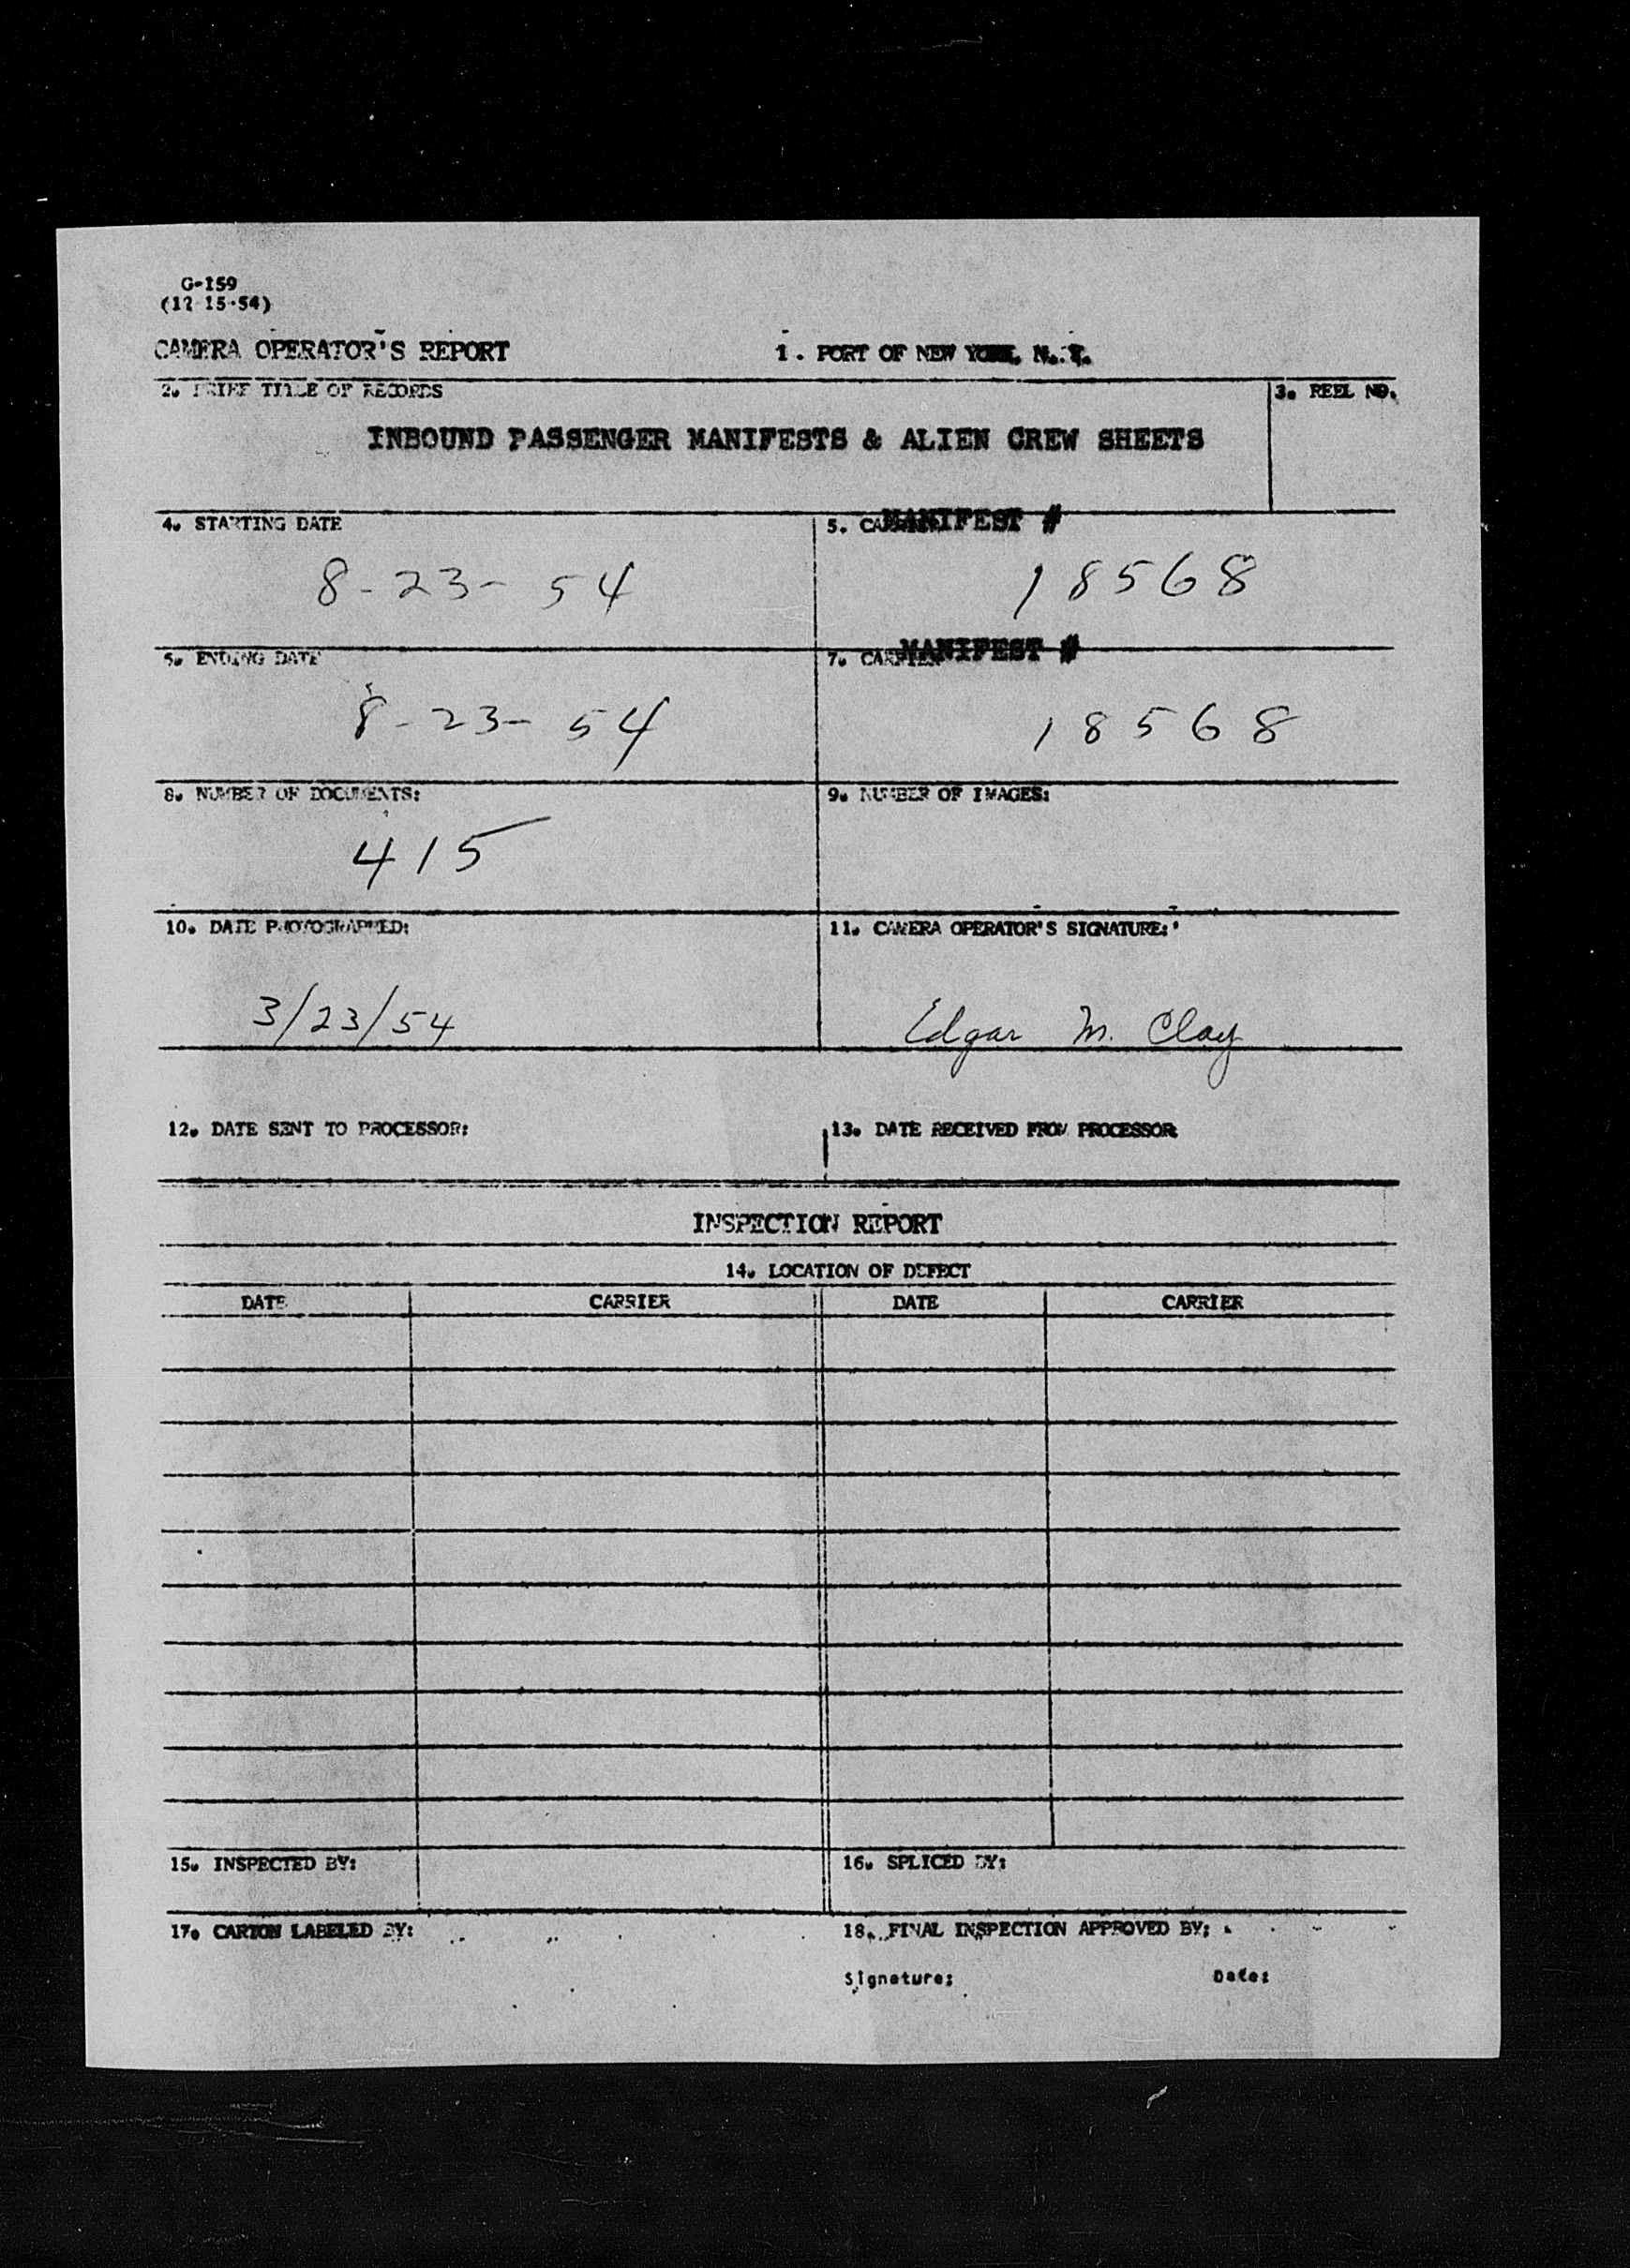 G-159
(12-15-54)
CAMERA OPERATOR'S REPORT 1. PORT OF NEW YORK, N. Y.
2. BRIEF TITLE OF RECORDS 3. REEL NO.
INBOUND PASSENGER MANIFESTS & ALIEN CREW SHEETS
4. STARTING DATE 5. MANIFEST #
8-23-54 18568
6. ENDING DATE 7. CARRIER MANIFEST #
8-23-54 18568
8. NUMBER OF DOCUMENTS: 9. NUMBER OF IMAGES:
415
10. DATE PHOTOGRAPHED: 11. CAMERA OPERATOR'S SIGNATURE:
3/23/54 Edgar M. Clay
12. DATE SENT TO PROCESSOR: 13. DATE RECEIVED FROM PROCESSOR
INSPECTION REPORT
14. LOCATION OF DEFECT
DATE CARRIER DATE CARRIER
15. INSPECTED BY: 16. SPLICED BY:
17. CARTON LABELED BY: 18. FINAL INSPECTION APPROVED BY:
Signature: Date: